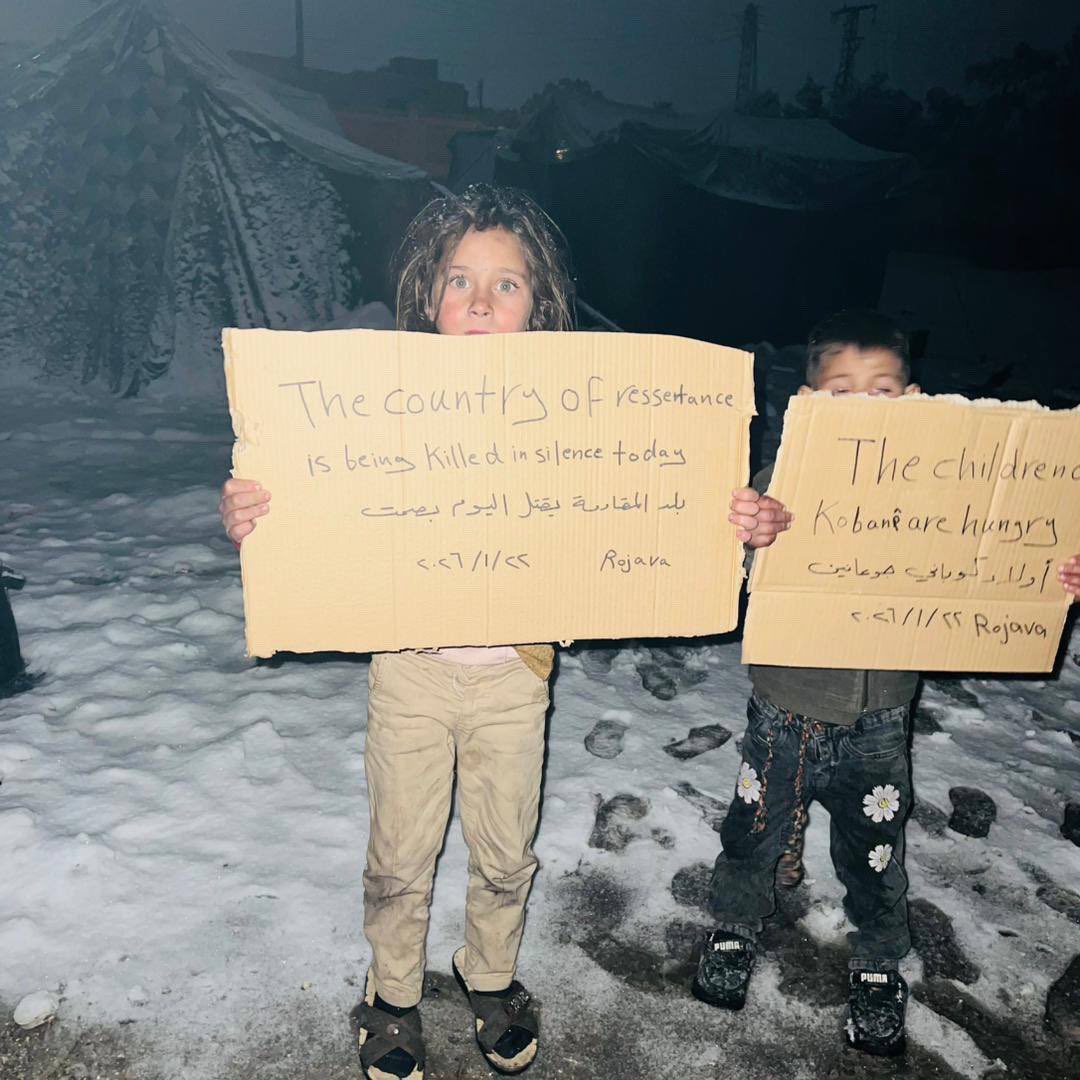 The country of ressertance
is being killed in silence today
بلد المقاومة يقتل اليوم بصمت
٢٠٢٦/١/٢٢ Rojava
The children o
Kobanê are hungry
أولاد كوباني جوعانين
٢٠٢٦/١/٢٢ Rojava
PUMA
PUMA